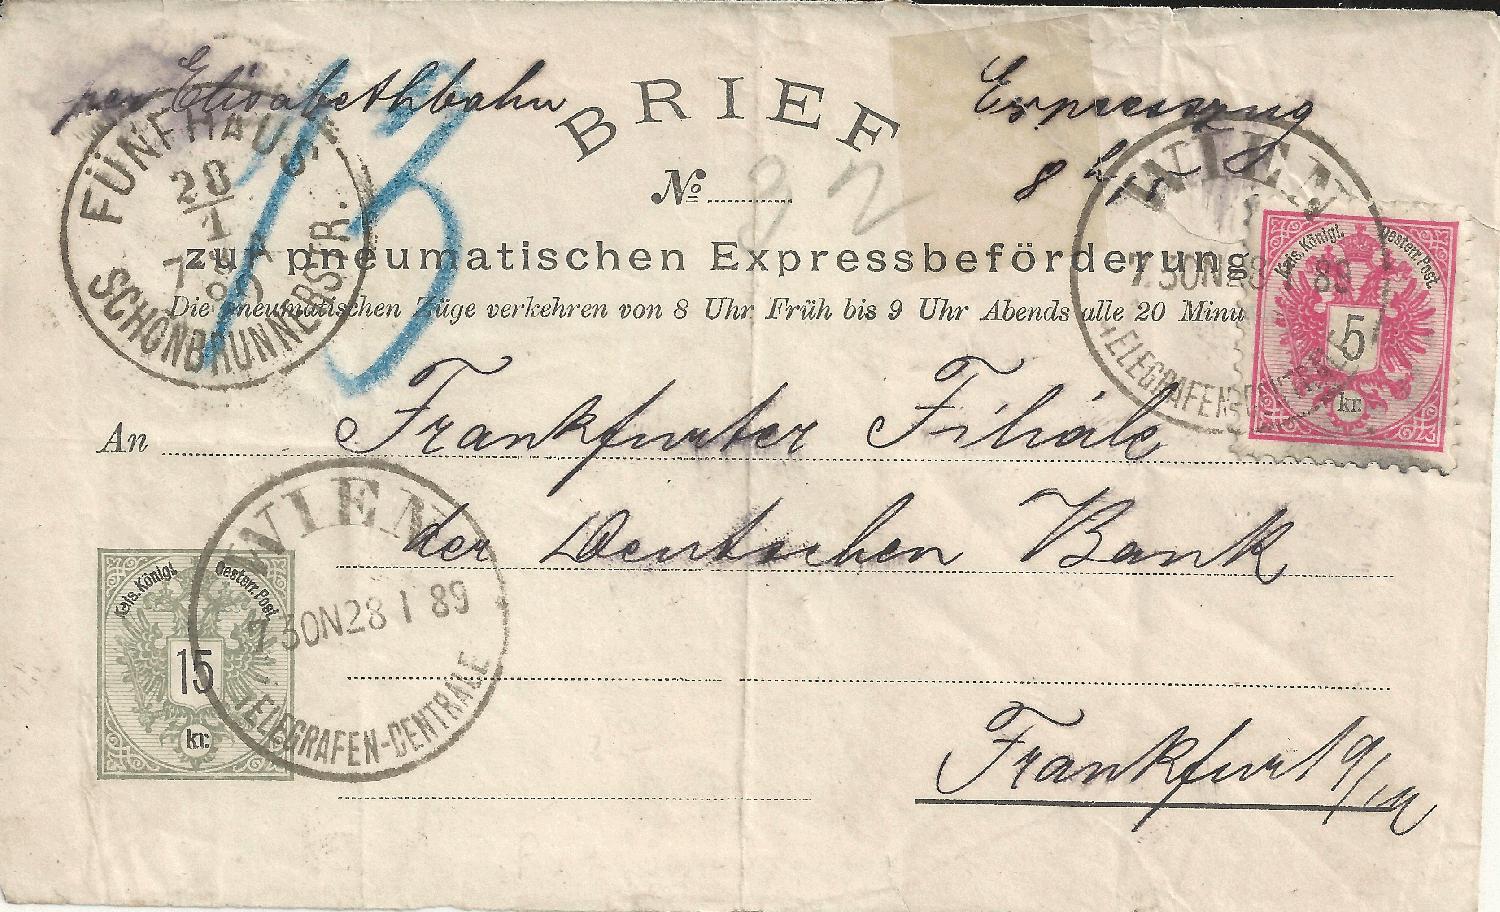 per Elisabethbahn
BRIEF
Expresszug
8 h
FÜNFHAUS
28
1
7
89
SCHÖNBRUNNERSTR.
13
No
32
WIEN
7 30N 28 1 89
TELEGRAFEN-CENTRALE
zur pneumatischen Expressbeförderung
Kais. Königl. Oesterr. Post.
5
kr.
Die pneumatischen Züge verkehren von 8 Uhr Früh bis 9 Uhr Abends alle 20 Minu
An Frankfurter Filiale
der Deutschen Bank
WIEN
7 30N28 1 89
TELEGRAFEN-CENTRALE
Kais. Königl. Oesterr. Post.
15
kr.
Frankfurt a/M